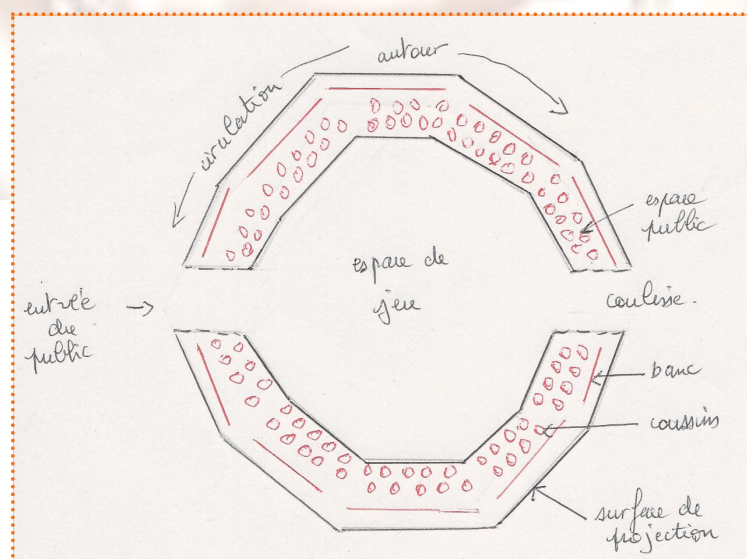 autour
circulation
espace
public
espace de
jeu
entrée
du
public
coulisse.
banc
coussins
surface de
projection